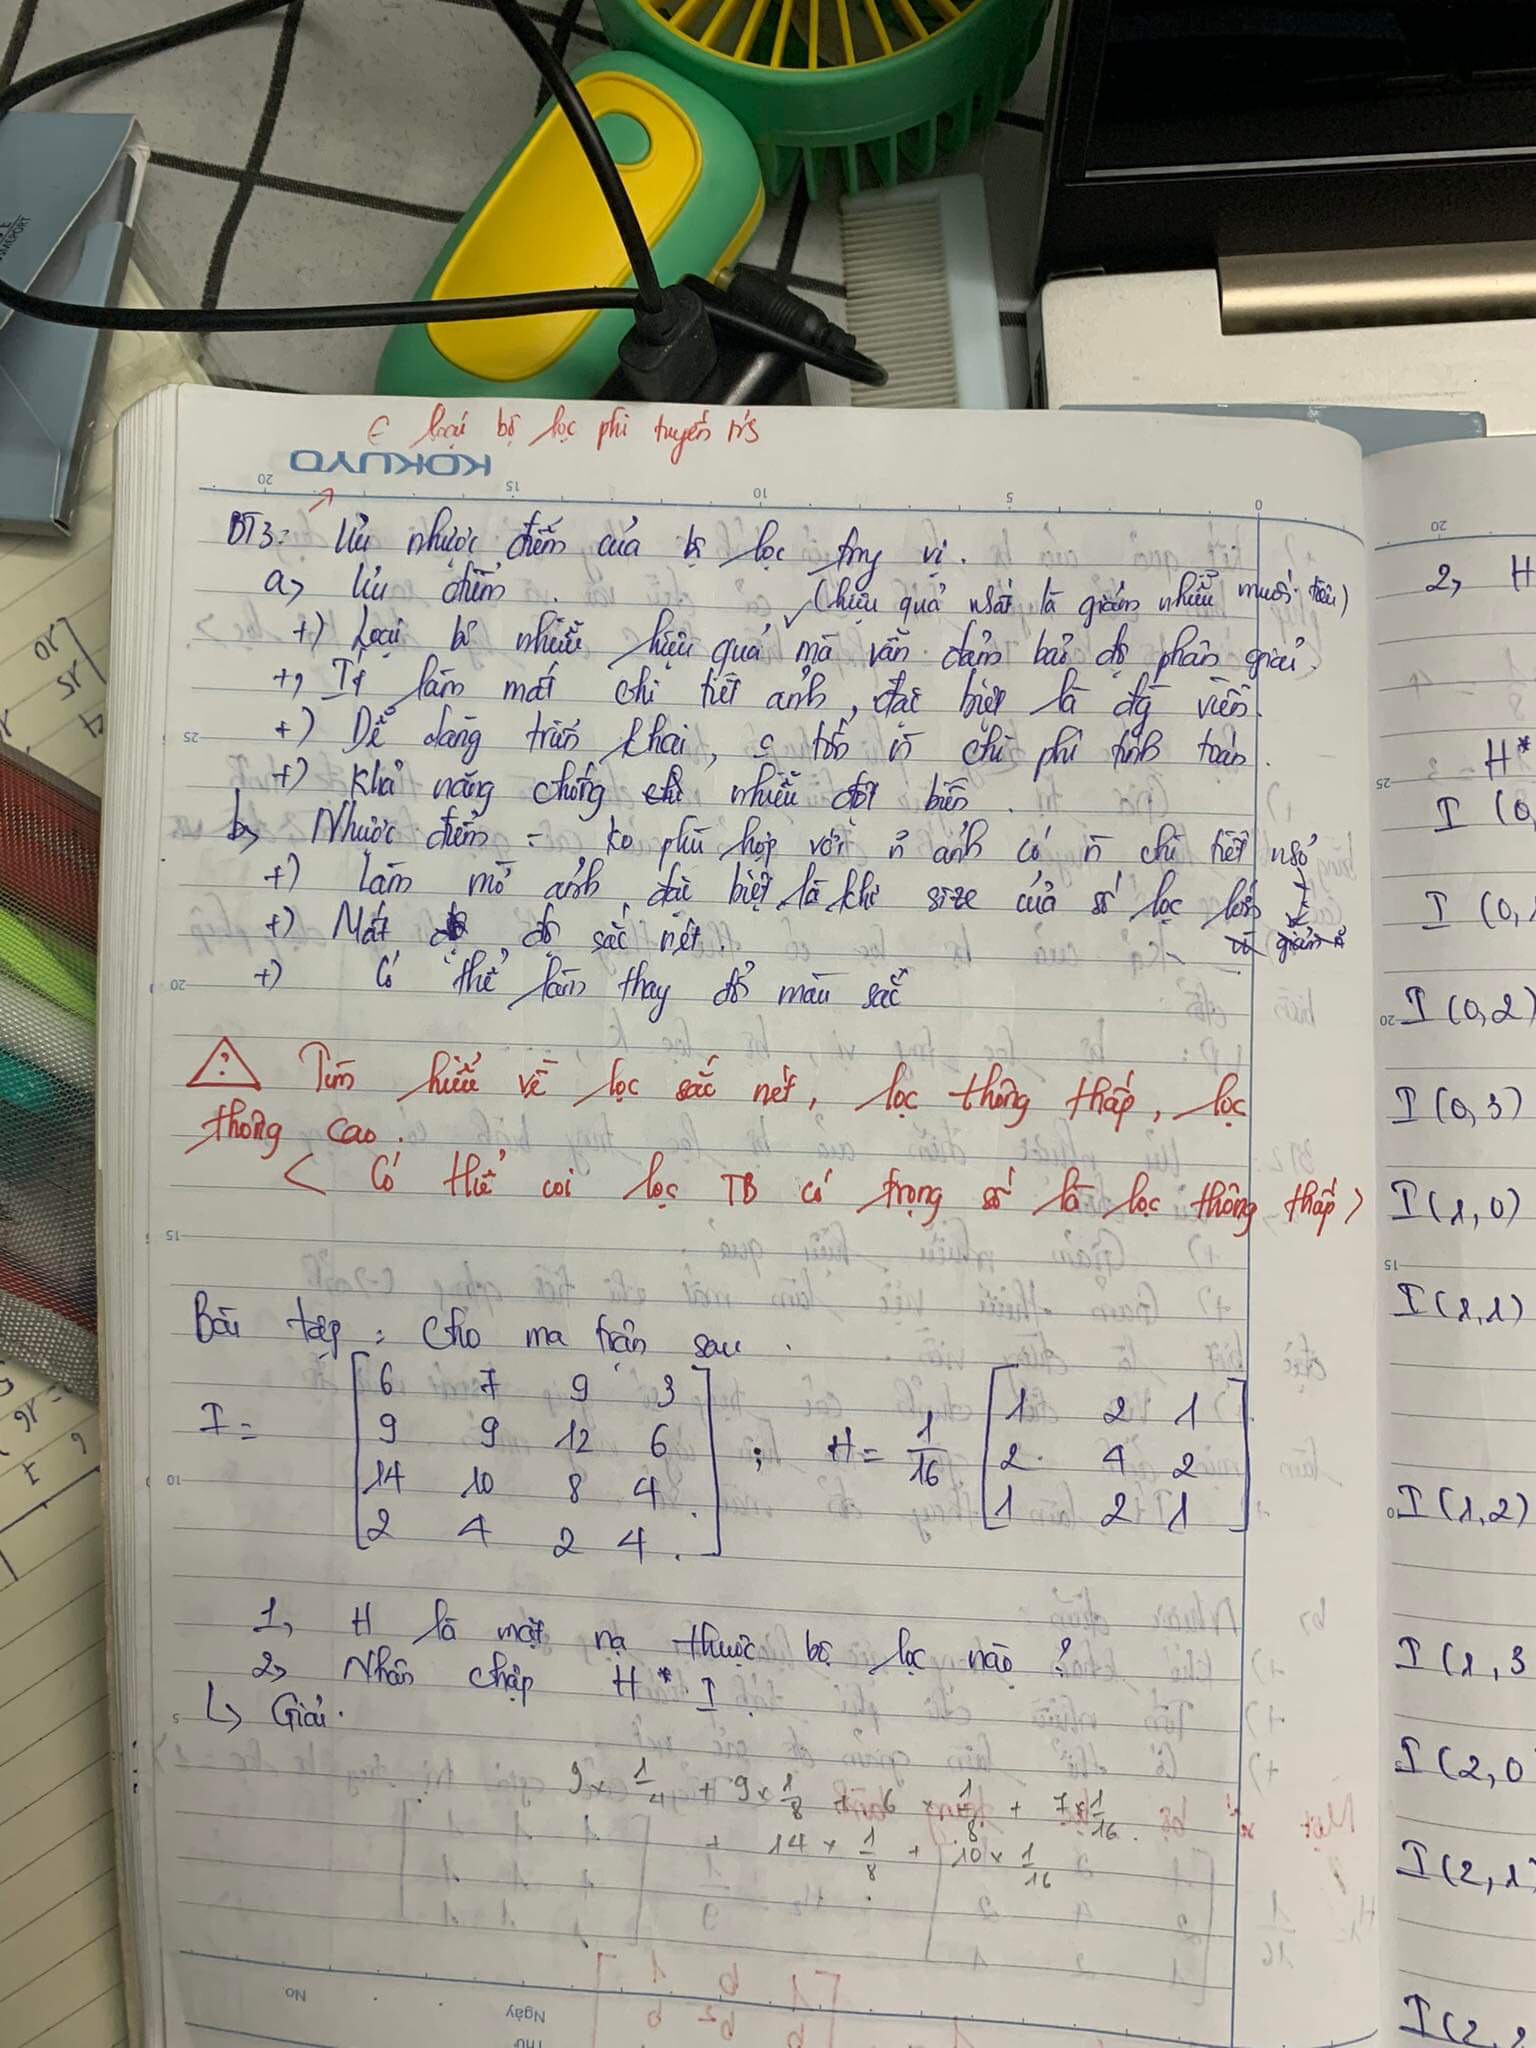 ∈ loại bộ lọc phi tuyến
KOKUYO
20 15 10 5 0
BT3: Ưu nhược điểm của bộ lọc trg vị.
a, Ưu điểm.
(hiệu quả nhất là giảm nhiễu muối tiêu)
+) Loại bỏ nhiễu hiệu quả mà vẫn đảm bảo độ phân giải.
+, Ít làm mất chi tiết ảnh, đặc biệt là đg viền.
+) Dễ dàng triển khai, tốn chi phí tính toán.
+) Khả năng chống nhiễu đột biến.
b, Nhược điểm = ko phù hợp với ảnh có chi tiết nhỏ
+) Làm mờ ảnh, đặc biệt là khi size của số lọc lớn
+) Mất độ sắc nét.
+) Có thể làm thay đổi màu sắc
Tìm hiểu về lọc sắc nét, lọc thông thấp, lọc
thông cao.
< Có thể coi lọc TB có trọng số là lọc thông thấp >
Bài tập: Cho ma trận sau.
I = [6 7 9 3
9 9 12 6
14 10 8 4
2 4 2 4] ; H = 1/16 [1 2 1
2 4 2
1 2 1]
1, H là mặt nạ thuộc bộ lọc nào?
2, Nhân chập H * I
↳ Giải.
9 × 1/4 + 9 × 1/8 + 6 × 1/8 + 7 × 1/16
+ 14 × 1/8 + 10 × 1/16
No
Ngày
Thứ
20
2, H
H*
I (0,
I (0,
I (0,2)
I (0,3)
I (1,0)
I (1,1)
I (1,2)
I (1,3
I (2,0
I (2,1)
I (2,2